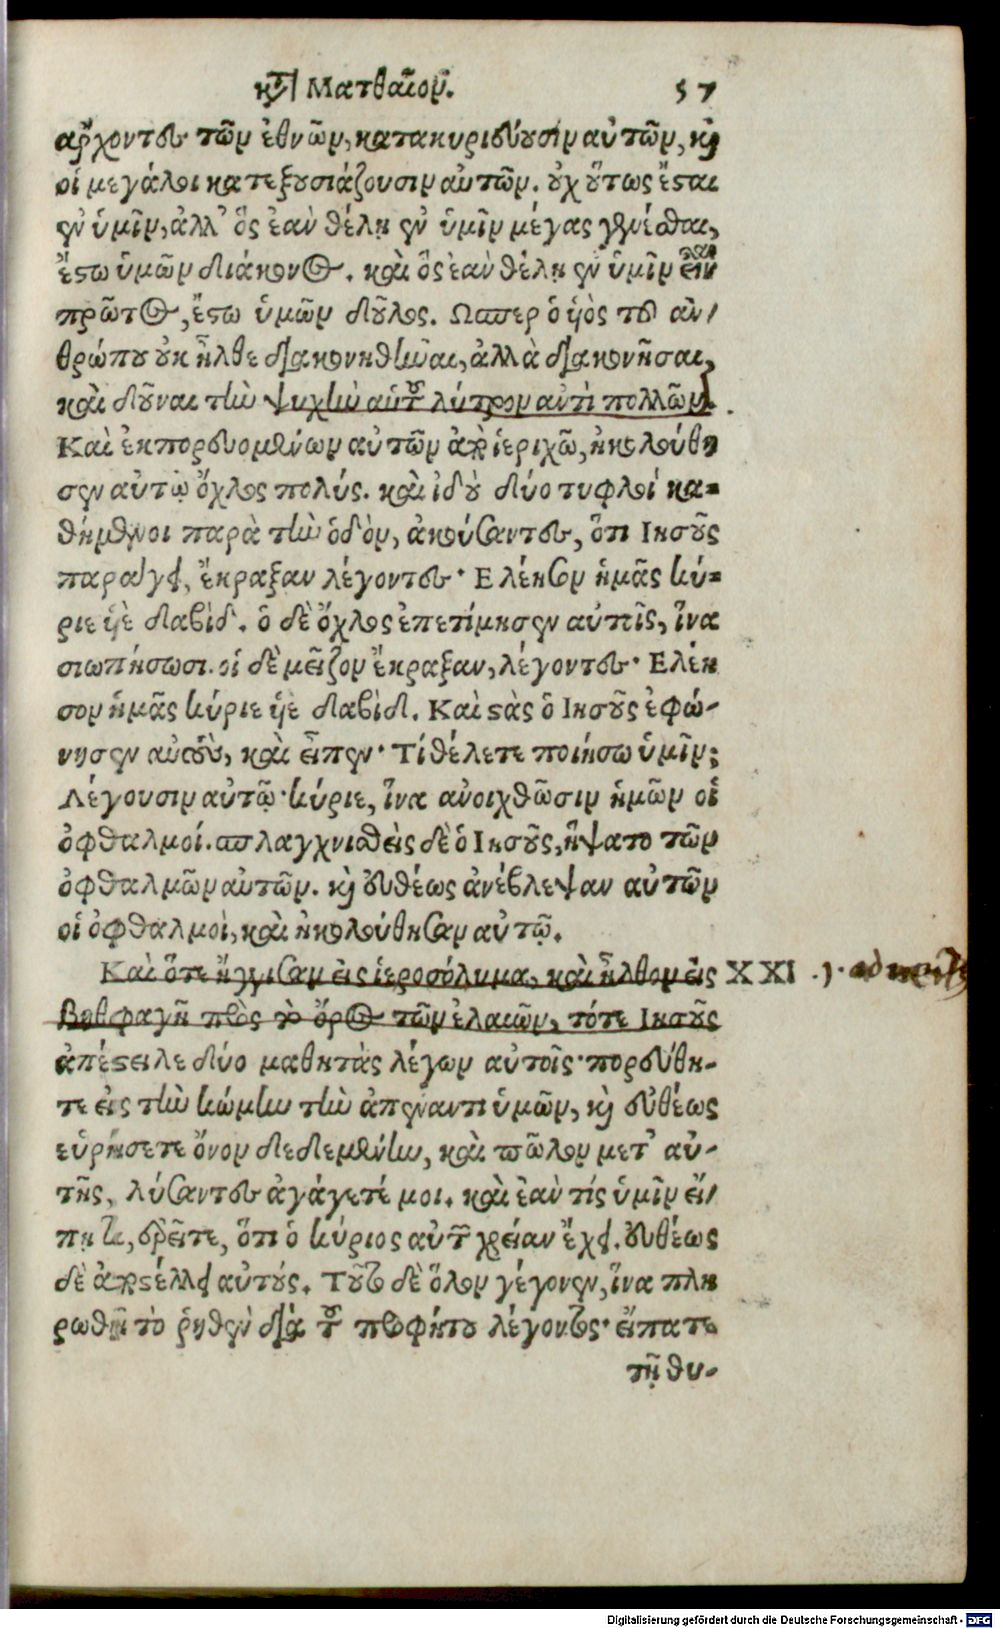 κτ̃ Ματθαῖον. 57
ἄρχοντες τῶν ἐθνῶν, κατακυριεύουσιν αὐτῶν, κỳ
οἱ μεγάλοι κατεξουσιάζουσιν αὐτῶν. οὐχ οὕτως ἔσται
ἐν ὑμῖν, ἀλλ’ ὃς ἐὰν θέλῃ ἐν ὑμῖν μέγας γενέσθαι,
ἔστω ὑμῶν διάκονος. καὶ ὃς ἐὰν θέλῃ ἐν ὑμῖν εἶναι
πρῶτος, ἔστω ὑμῶν δοῦλος. Ωσπερ ὁ ἡὸς τοῦ ἀν/
θρώπου οὐκ ἦλθε διακονηθῆναι, ἀλλὰ διακονῆσαι,
καὶ δοῦναι τὴν ψυχὴν αὑτοῦ λύτρον αντὶ πολλῶν.
Καὶ ἐκπορευομένων αὐτῶν ἀπὸ ἱεριχῶ, ἠκολούθη
σεν αὐτῷ ὄχλος πολύς. καὶ ἰδοὺ δύο τυφλοί κα-
θήμενοι παρὰ τὴν ὁδὸν, ἀκούσαντες, ὅτι Ιησοῦς
παράγει, ἔκραξαν λέγοντες· Ελέησον ἡμᾶς κύ-
ριε ὑὲ δαβίδ. ὁ δὲ ὄχλος ἐπετίμησεν αὐτοῖς, ἵνα
σιωπήσωσι. οἱ δὲ μεῖζον ἔκραξαν, λέγοντες· Ελέη
σον ἡμᾶς κύριε ὑὲ δαβὶδ. Καὶ στὰς ὁ Ιησοῦς ἐφώ-
νησεν αὐτοὺς, καὶ εἶπεν· Τί θέλετε ποιήσω ὑμῖν;
Λέγουσιν αὐτῷ· κύριε, ἵνα ανοιχθῶσιν ἡμῶν οἱ
ὀφθαλμοί. σπλαγχνισθεὶς δὲ ὁ Ιησοῦς, ἥψατο τῶν
ὀφθαλμῶν αὐτῶν. κỳ εὐθέως ἀνέβλεψαν αὐτῶν
οἱ ὀφθαλμοὶ, καὶ ἠκολούθησαν αὐτῷ.
Καὶ ὅτε ἤγγισαν εἰς ἱεροσόλυμα, καὶ ἦλθον εἰς XXI
Βηθφαγῆ πρὸς τὸ ὄρος τῶν ἐλαιῶν, τότε Ιησοῦς
ἀπέστειλε δύο μαθητὰς λέγων αὐτοῖς· πορεύθη-
τε εἰς τὴν κώμην τὴν ἀπέναντι ὑμῶν, κỳ εὐθέως
εὑρήσετε ὄνον δεδεμένην, καὶ πῶλον μετ’ αὐ-
τῆς, λύσαντες ἀγάγετέ μοι. καὶ ἐάν τίς ὑμῖν εἴ/
πῃ τι, ἐρεῖτε, ὅτι ὁ κύριος αὐτῶν χρείαν ἔχει. εὐθέως
δὲ ἀποστέλλει αὐτούς. Τοῦτο δὲ ὅλον γέγονεν, ἵνα πλη
ρωθῇ τὸ ῥηθὲν διὰ τοῦ προφήτου λέγοντος· εἴπατε
τῇ θυ-
Digitalisierung gefördert durch die Deutsche Forschungsgemeinschaft - DFG